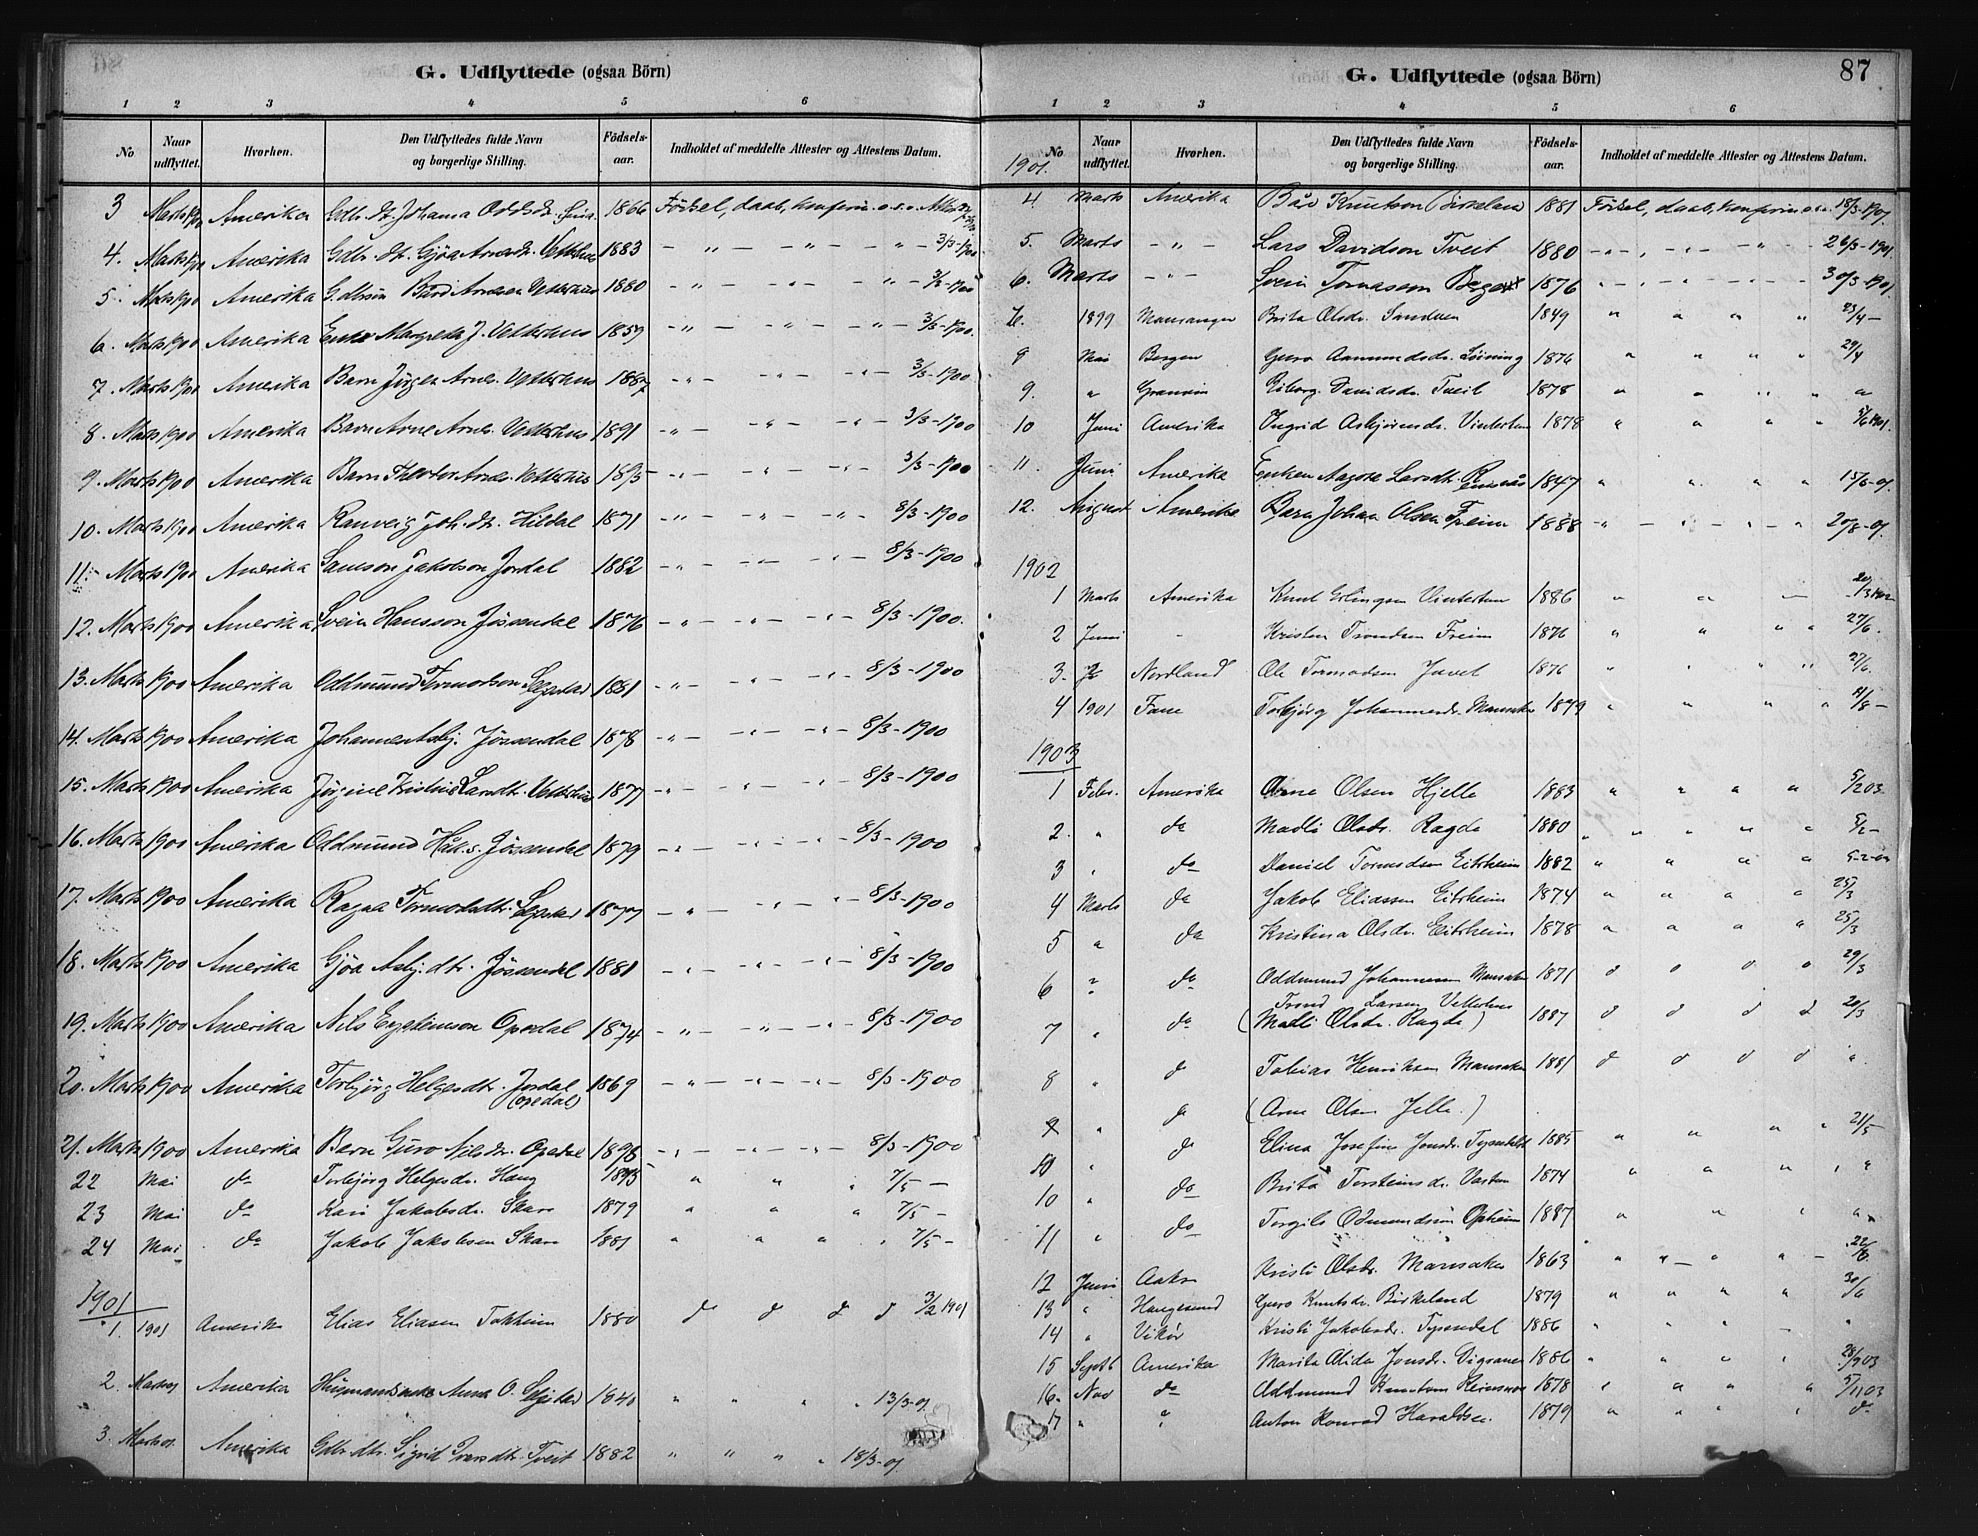 G. Udflyttede (ogsaa Börn)
1 2 3 4 5 6
No Naar udflyttet. Hvorhen. Den Udflyttedes fulde Navn og borgerlige Stilling. Födsels-aar. Indholdet af meddelte Attester og Attestens Datum.
3 Marts 1900 Amerika Gdbr. dt. Johanna Oddsdt. 1866 Födsel, daab, konfirm. o.s.v.
4. Marts 1900 Amerika Gdbr. dt. Gjöa Arnesdt. Vetterhus 1883 - " - " - " - 3/3-1900
5. Marts 1900 Amerika Gdbrsön Bård Arnesen Vetterhus 1880 - " - " - " - 3/3-1900
6. Marts 1900 Amerika Enke Margreta J. Vetterhus 1859 - " - " - " - 3/3-1900.
7. Marts 1900 Amerika Barn Jörgen Arnes. Vetterhus 1887 - " - " - " - 3/3-1900
8. Marts 1900 Amerika Barn Arne Arnes. Vetterhus 1891 - " - " - " - 3/3-1900
9. Marts 1900 Amerika Barn Theodor Arnes. Vetterhus 1895 - " - " - " - 3/3-1900
10. Marts 1900 Amerika Ranveig Joh. dt. Hildal 1871 - " - " - " - 8/3-1900
11. Marts 1900 Amerika Samson Jakobson Jordal 1882 - " - " - " - 8/3-1900
12. Marts 1900 Amerika Svein Hansson Jösendal 1876 - " - " - " - 8/3-1900.
13. Marts 1900 Amerika Oddmund Tormodson 1881 - " - " - " - 8/3-1900
14. Marts 1900 Amerika Johannes Asbj. Jösendal 1878 - " - " - " - 8/3-1900
15. Marts 1900 Amerika Jörgine Kristine Larsdt. Vetterhus 1877 - " - " - " - 8/3-1900
16. Marts 1900 Amerika Oddmund Håk.s. Jösendal 1879 - " - " - " - 8/3-1900
17. Marts 1900 Amerika Ragna Tormodsdt. 1877 - " - " - " - 8/3-1900
18. Marts 1900 Amerika Gjöa Asbj.dtr. Jösendal 1881 - " - " - " - 8/3-1900
19. Marts 1900 Amerika Nils Opedal 1874 - " - " - " - 8/3-1900
20. Marts 1900 Amerika Torbjörg Helgesdtr. Jordal (opedal) 1869 - " - " - " - 8/3-1900
21. Marts 1900 Amerika Barn Guro Nilsdtr. Opedal 1898 - " - " - " - 8/3-1900
22 Mai do Torbjörg Helgesdr. Haug " " " 7/5 -
23 Mai do Kari Jakobsdr. Skare 1879 " " " 7/5 -
24 Mai do Jakob Jakobsen Skare 1881 " " " " 7/5 -
1901
1. 1901 Amerika Elias Eliasen Tokheim 1880 d d d d 3/2 1901
2. Amerika Husmandsenke Anna O. 1840 " " " " 13/3-01
3. Marts 01. Amerika Gdbr. dtr. Sigrid Tveit 1882 " " " " 18/3-01.
G. Udflyttede (ogsaa Börn) 87
1 2 3 4 5 6
1901. No Naar udflyttet. Hvorhen. Den Udflyttedes fulde Navn og borgerlige Stilling. Födsels-aar. Indholdet af meddelte Attester og Attestens Datum.
4 Marts Amerika Knutson Birkeland 1881 Födsel, daab, konfirm. 18/3-1901.
5. Marts - " - Lars Davidson Tveit 1880 - " - " - " - 26/3-1901.
6. Marts - " - Svein Tomasson 1876 - " - " - " - 30/3-1901.
7. 1899 Mauranger Brita Olsdr. Sandven 1849 " " " " 23/4 -
8 Mai Bergen Guro Aamundsdr. Löining 1876 " " " " 29/4
9. " Granvin Eiborg Davidsdr. Tveit 1878 " " " " "
10 Juni Amerika Ingrid Asbjörnsdr. Vintertun 1878 " " " " 5/6 1901.
11. Juni Amerika Enken Aagota Larsdtr. 1847 " " " " 15/6-01.
12. August Amerika Barn Johan Olsen Freim 1888 - " - " - " - 20/8-01.
1902
1 Marts Amerika Knut Erlingsen Vintertun 1886 " " - 20/3 1902
2 Juni - Kristen Trondsen Freim 1876 " " " " 27/6.
3. Nordland Ole Tormodsen Javet 1876 " " " " 27/6.
4 1901 Fane Torbjörg Johannesdr. Mannsaker 1879 " " " " /8 -
1903
1 Febr. Amerika Arne Olsen Hjelle 1883 " " " " 5/2 03.
2. " do Madli Olsdr. Ragde 1880 " " " " 5/2 -
3 " do Daniel Tormodsen Eitrheim 1882 " " " " 5-2-03
4 Marts do Jakob Eliassen Eitrheim 1874 " " " " 25/3
5 " do Kristina Olsdr. Eitrheim 1878 " " " " 25/3
6 " do Oddmund Johannessen Mannsaker 1871 d d d d 29/3
7 " do Trond Larsen Vetterhus (Madli Olsdr. Ragde) 1887 d d d d 20/3
8 " d Tobias Henriksen Mannsaker 1881 d d d d "
" d (Arne Olsen Jelle.)
9 " do Elina Josefine Jonsdr. Tyssedal 1885 " " " " 21/5
10 " do Brita Torsteinsdr. Vastun 1874 " " " " "
11 " do Torgils Odmundsön Opheim 1887 " " " "
12 Juni Kristi Olsdr. Mannsaker 1863 " " " " 22/6.
13 " Haugesund Guro Knutsdr. Birkeland 1879 " " " " 30/6
14 " Vikör Kristi Jakobsdr. Tyssedal 1886 " " " - "
15 Septb Amerika Marita Alida Jonsdr. Digranes 1886 " " " " 28/9 03
16. Nov do Oddmund Knutsen 1878 " " " " 5/11 03
17 " " Anton Konrad Haraldsen. 1879 " " " " do